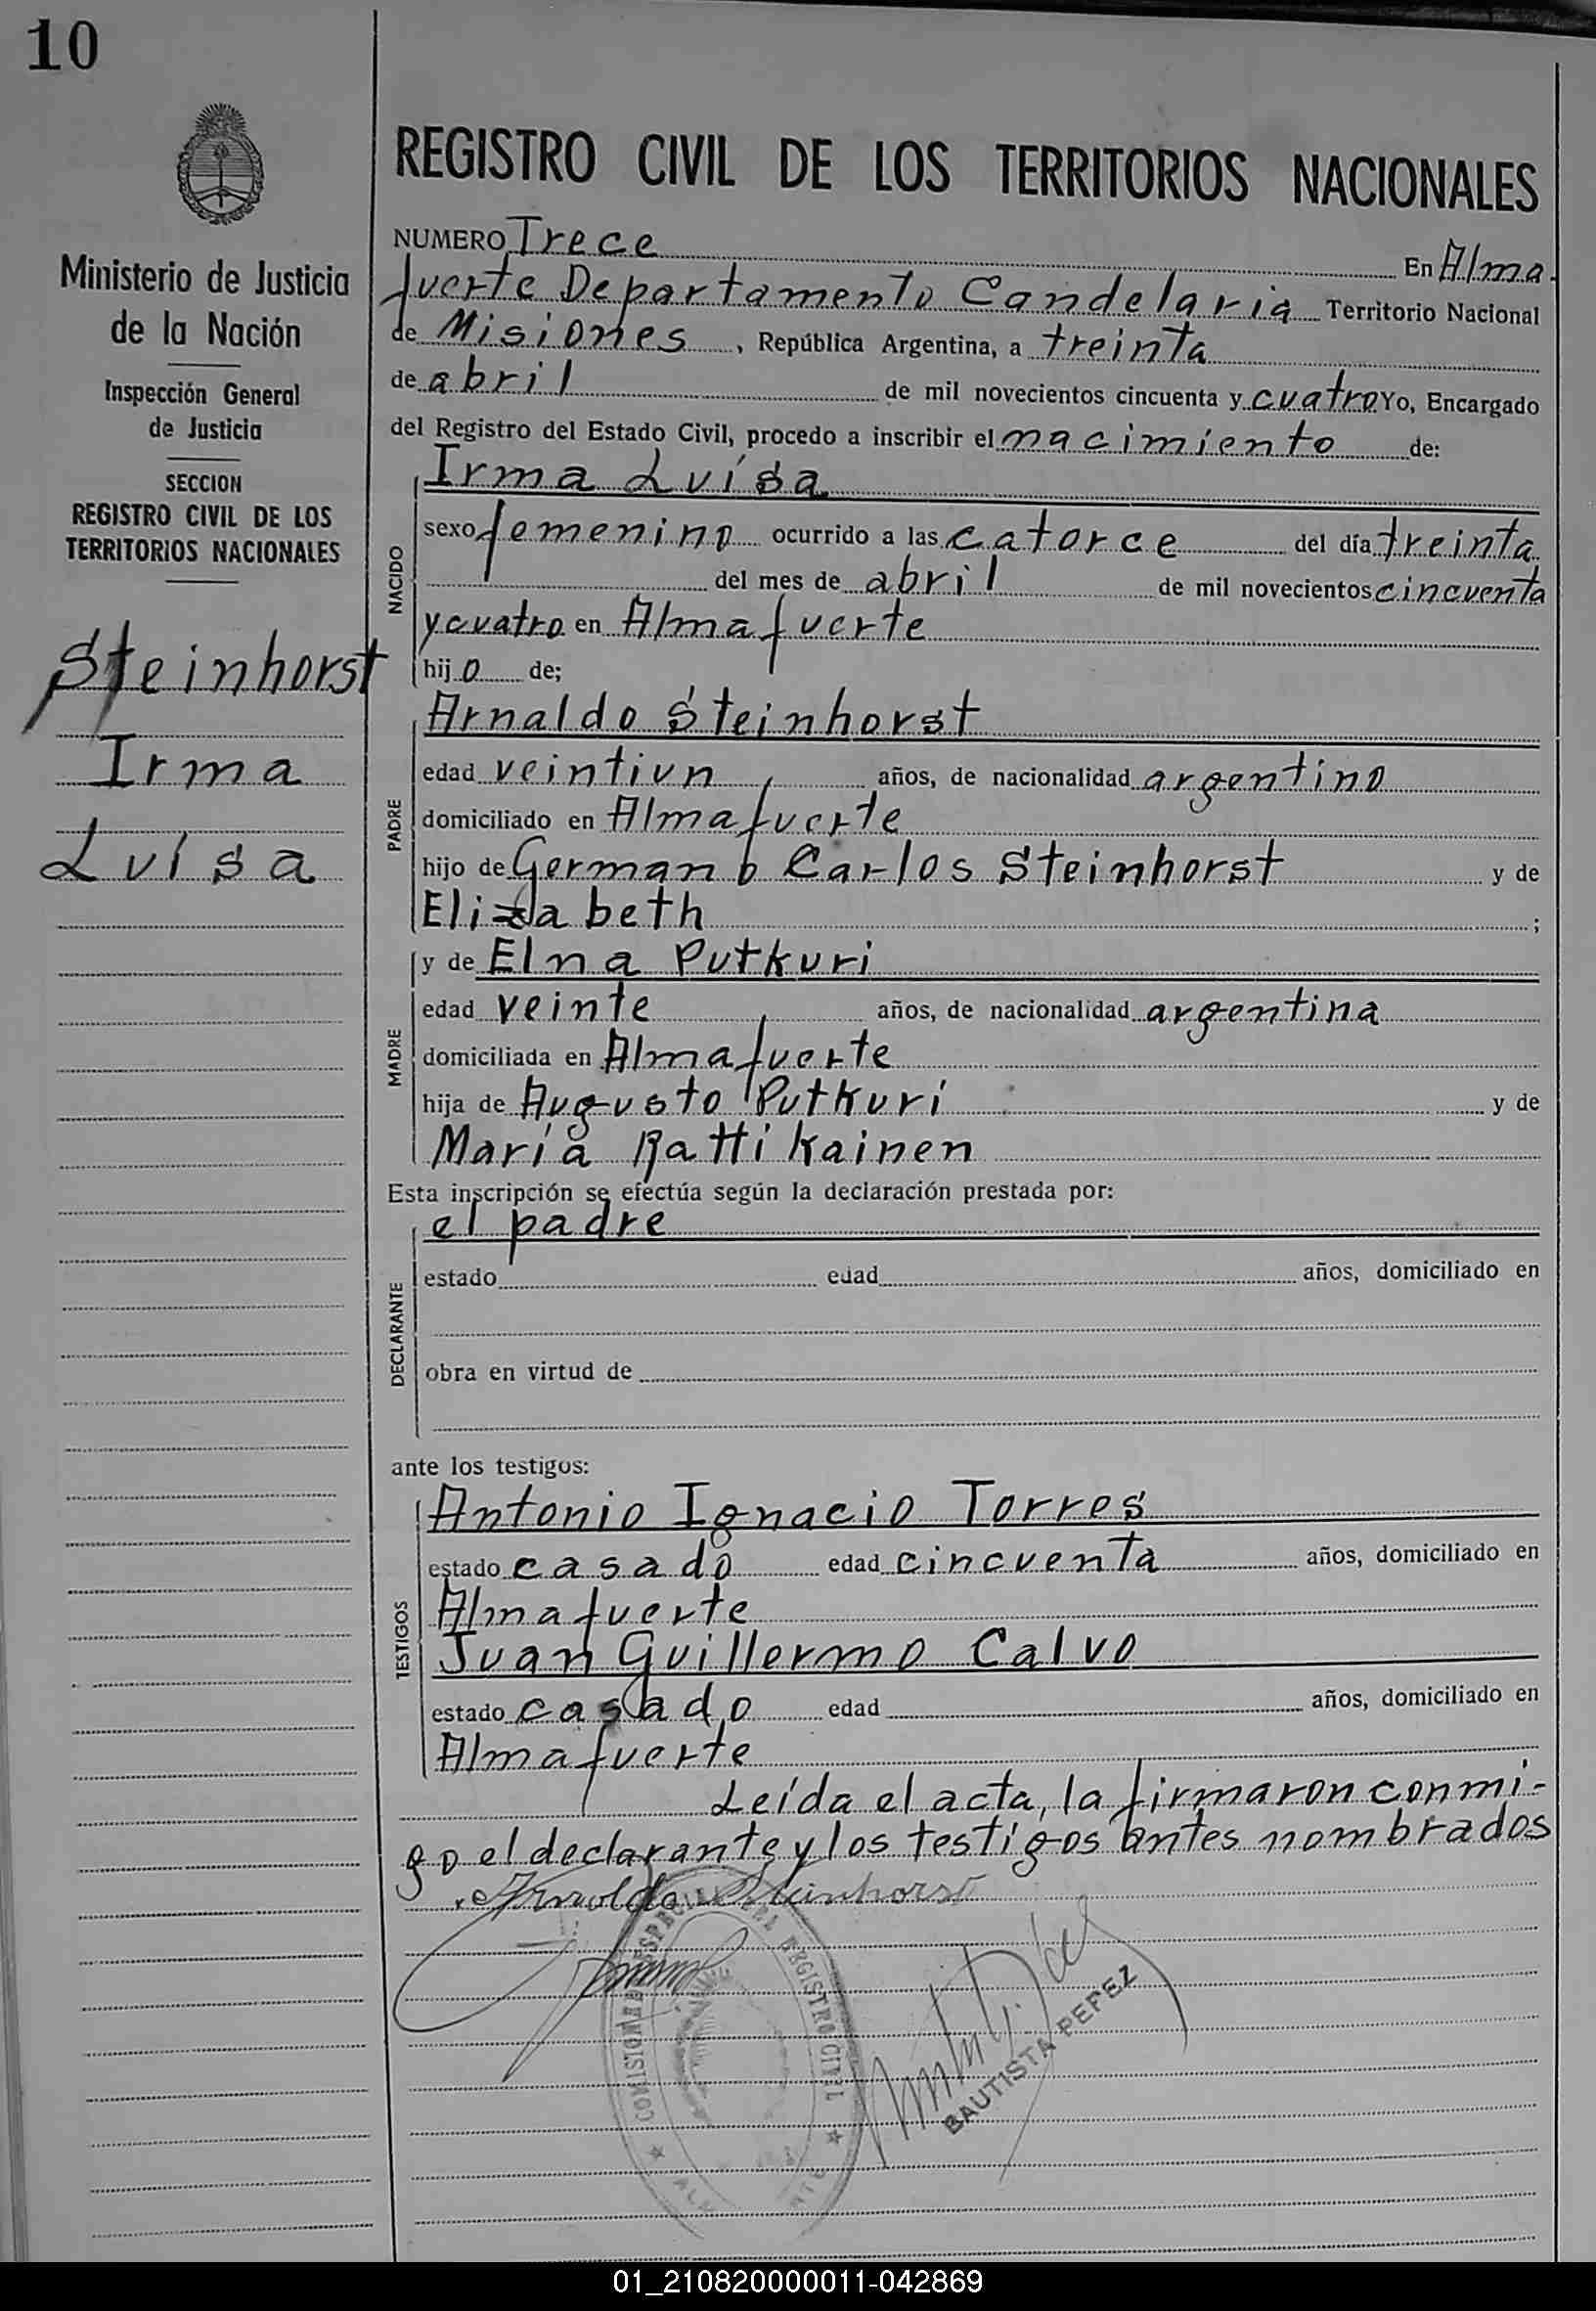 10
REGISTRO CIVIL DE LOS TERRITORIOS NACIONALES
Ministerio de Justicia
de la Nación
Inspección General
de Justicia
SECCION
REGISTRO CIVIL DE LOS
TERRITORIOS NACIONALES
Steinhorst
Irma
Luísa
NUMERO Trece En Alma
fuerte Departamento Candelaria Territorio Nacional
de Misiones, República Argentina, a treinta
de abril de mil novecientos cincuenta y cuatro Yo, Encargado
del Registro del Estado Civil, procedo a inscribir el nacimiento de:
NACIDO
Irma Luísa
sexo femenino ocurrido a las catorce del día treinta
del mes de abril de mil novecientos cincuenta
y cuatro en Almafuerte
hijo de;
PADRE
Arnaldo Steinhorst
edad veintiun años, de nacionalidad argentino
domiciliado en Almafuerte
hijo de Germano Carlos Steinhorst y de
Elizabeth ;
MADRE
y de Elna Putkuri
edad veinte años, de nacionalidad argentina
domiciliada en Almafuerte
hija de Augusto Putkuri y de
María Rattikainen
Esta inscripción se efectúa según la declaración prestada por:
DECLARANTE
el padre
estado edad años, domiciliado en
obra en virtud de
ante los testigos:
TESTIGOS
Antonio Ignacio Torres
estado casado edad cincuenta años, domiciliado en
Almafuerte
Juan Guillermo Calvo
estado casado edad años, domiciliado en
Almafuerte
Leída el acta, la firmaron conmi-
go el declarante y los testigos antes nombrados
Arnoldo Steinhorst
REGISTRO CIVIL
BAUTISTA PEREZ
01_210820000011-042869